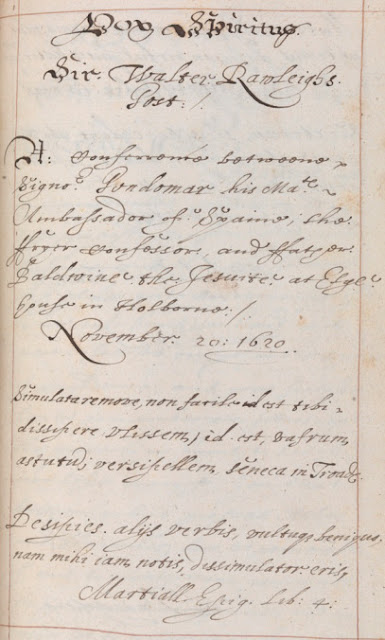 Vox Spiritus.
Sir. Walter. Rawleighs.
Post: /.
A: Conferrence betweene
Signor. Gondomar his Matie
Ambassador of. Spaine, the
ffryer Confessor, and ffather
Baldwine the Jesuite at Elye
house in Holborne. /.
November 20: 1620.
Simulata remove, non facile id est tibi
dissipere Vlissem, id. est, vafrum,
astutu, versipellem, Seneca in Troad.
Desipies. alijs verbis, vultuq; benigno,
nam mihi iam notis, dissimulator eris,
Martiall. Epig. Lib: 4: